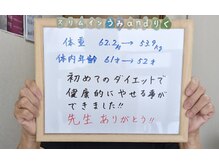 スリムインうみandりく
体重 62.2kg → 53.9kg
体内年齢 61才 → 52才
初めてのダイエットで
健康的にやせる事が
できました!!
先生 ありがとう!!